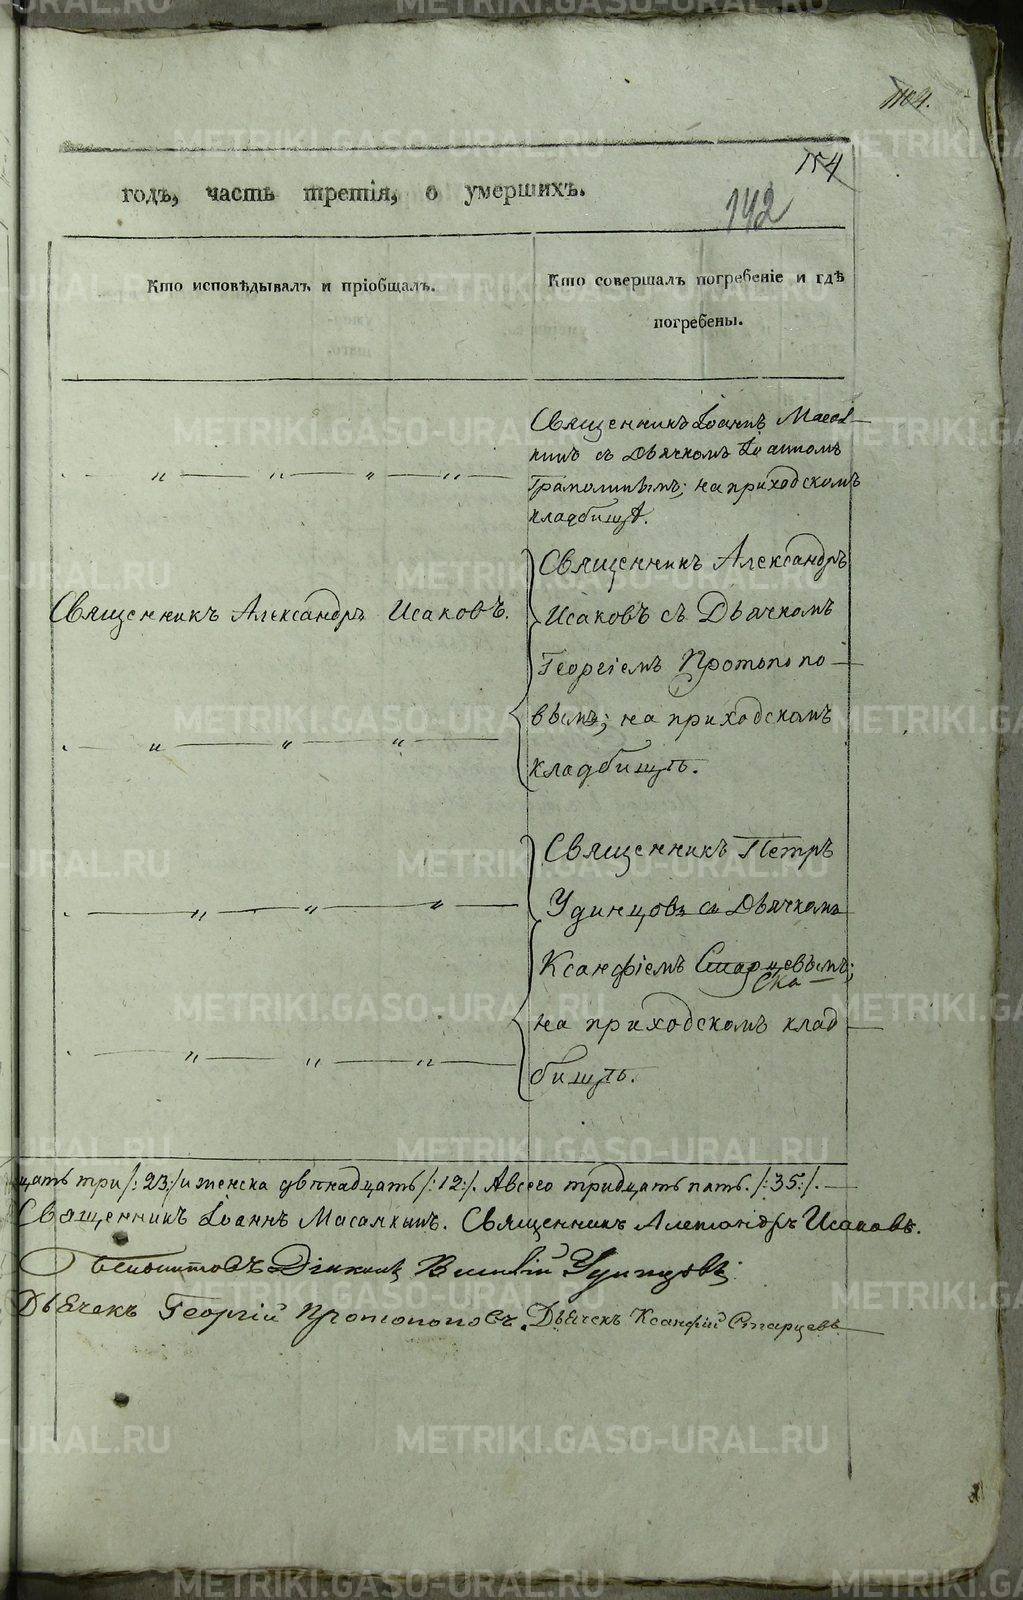 154
годъ, часть третія, о умершихъ.
142
Кто исповѣдывалъ и пріобщалъ.
Кто совершалъ погребеніе и гдѣ
погребены.
Священникъ Іоаннъ Масал-
кинъ съ Дьячкомъ Іоанномъ
на приходскомъ
кладбищѣ.
Священникъ Александръ Исаковъ.
Священникъ Александръ
Исаковъ съ Дьячкомъ
Георгіемъ Протопопо-
вымъ; на приходскомъ
кладбищѣ.
Священникъ Петръ
Удинцовъ съ Дьячкомъ
Ксанфіемъ Старцевымъ;
на приходскомъ клад-
бищѣ.
цать три /:23:/ и женска двѣнадцать /:12:/. А всего тридцать пять. /:35:/.
Священникъ Іоаннъ Масалкинъ. Священникъ Александръ Исаковъ.
Діаконъ Василій Удинцовъ
Дьячекъ Георгій Протопоповъ. Дьячекъ Ксанфій Старцевъ
METRIKI.GASO-URAL.RU